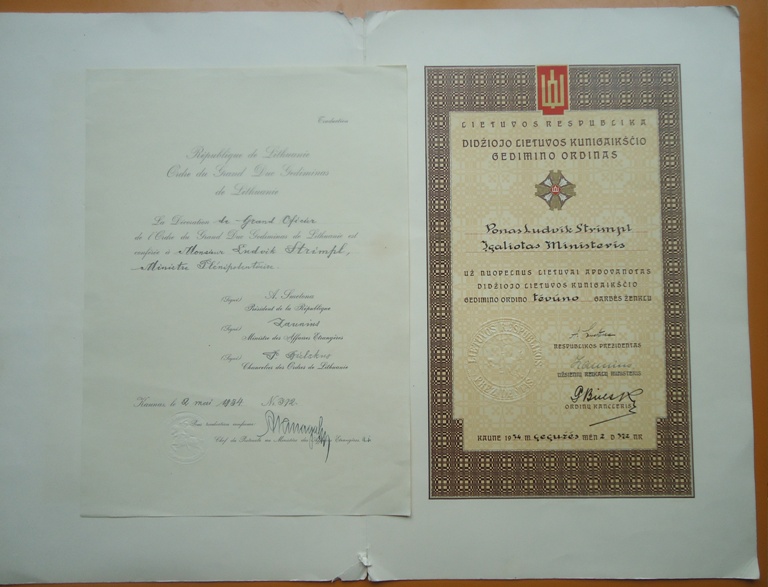 Traduction
République de Lithuanie
Ordre du Grand Duc Gediminas
de Lithuanie
La Décoration de Grand Oficier
de l'Ordre du Grand Duc Gediminas de Lithuanie est
conférée à Monsieur Ludvik Strimpl,
Ministre Plénipotentiaire
(Signé) A. Smetona
Président de la République
(Signé) Zaunius
Ministre des Affaires Etrangères
(Signé) P.
Chancelier des Ordres de Lithuanie
Kaunas, le 2 mai 1934. N. 372.
Pour traduction conforme:
Chef du Protocole au Ministère des Etrangères
LIETUVOS RESPUBLIKA
DIDŽIOJO LIETUVOS KUNIGAIKŠČIO
GEDIMINO ORDINAS
Ponas Ludvik Strimpl
Įgaliotas Ministeris
UŽ NUOPELNUS LIETUVAI APDOVANOTAS
DIDŽIOJO LIETUVOS KUNIGAIKŠČIO
GEDIMINO ORDINO tėvūno GARBĖS ŽENKLU
LIETUVOS RESPUBLIKOS
RESPUBLIKOS PREZIDENTAS
Zaunius
UŽSIENIŲ REIKALŲ MINISTERIS
ORDINŲ KANCLERIS
KAUNE 1934 M. gegužės MĖN 2 D 372 NR.